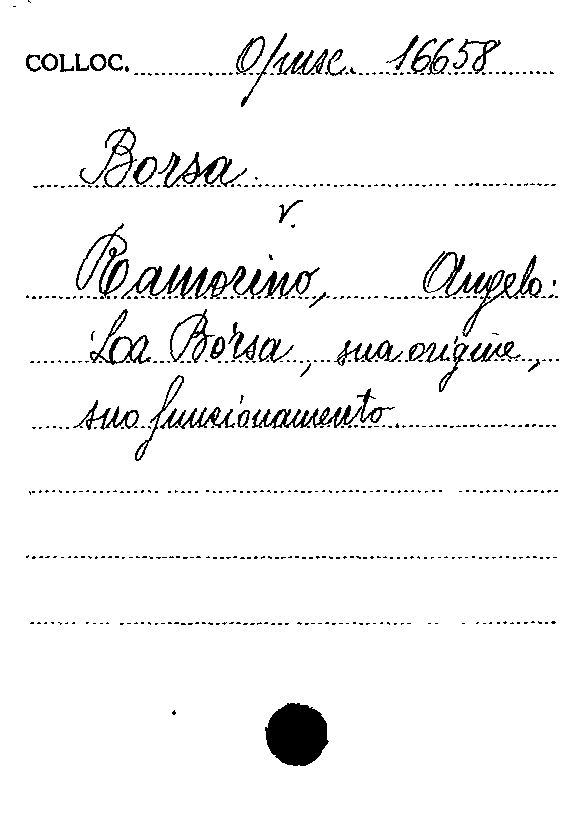 COLLOC. Opusc. 16658
Borsa.
v.
Ramorino, Angelo:
La Borsa, sua origine,
suo funzionamento.